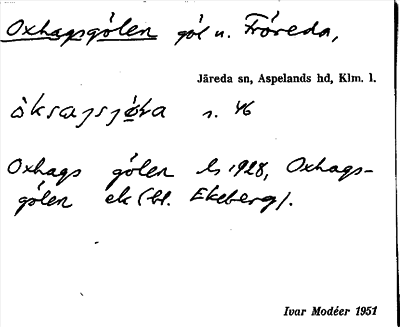 Oxhagsgölen göl u. Fröreda,
Järeda sn, Aspelands hd, Klm. l.
s. 46
Oxhags gölen ls 1928, Oxhags-
gölen ek (bl. Ekeberg).
Ivar Modéer 1951